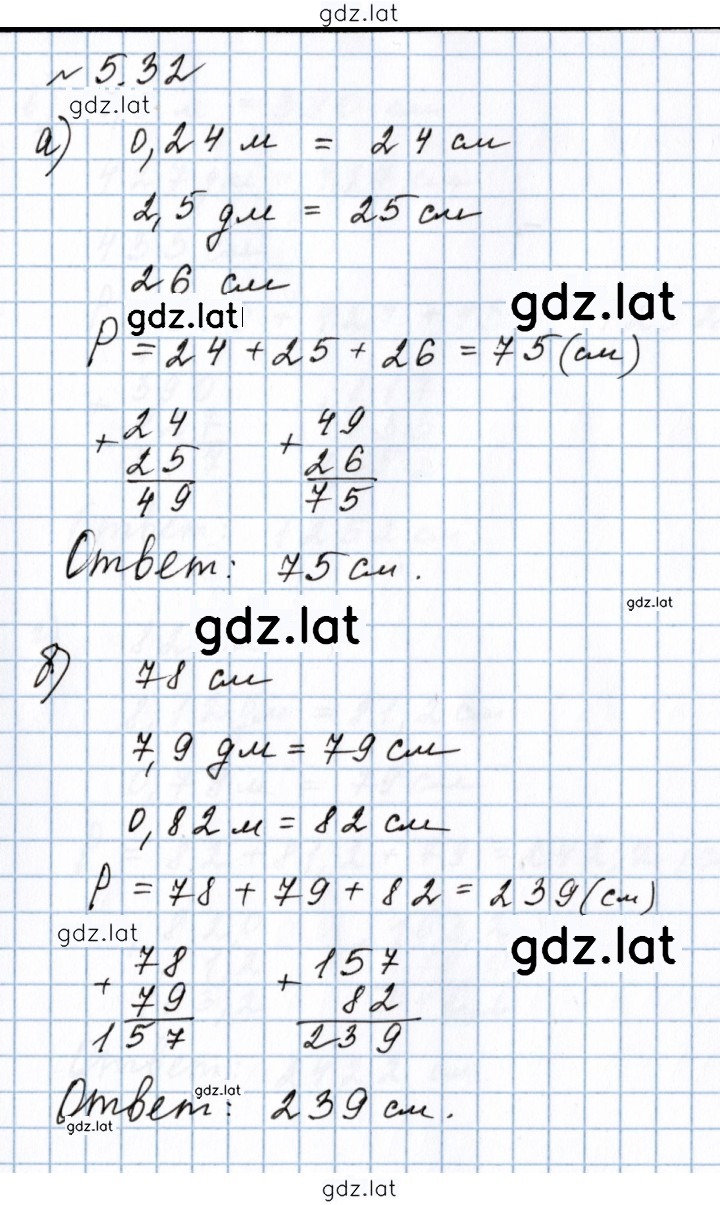 gdz.lat
№ 5.32
gdz.lat
а) 0,24 м = 24 см
2,5 дм = 25 см
26 см
gdz.lat
gdz.lat
P = 24 + 25 + 26 = 75 (см)
+ 24 + 49
25 26
49 75
Ответ: 75 см.
gdz.lat
gdz.lat
б) 78 см
7,9 дм = 79 см
0,82 м = 82 см
P = 78 + 79 + 82 = 239 (см)
gdz.lat
gdz.lat
+ 78 + 157
79 82
157 239
gdz.lat
Ответ: 239 см.
gdz.lat
gdz.lat